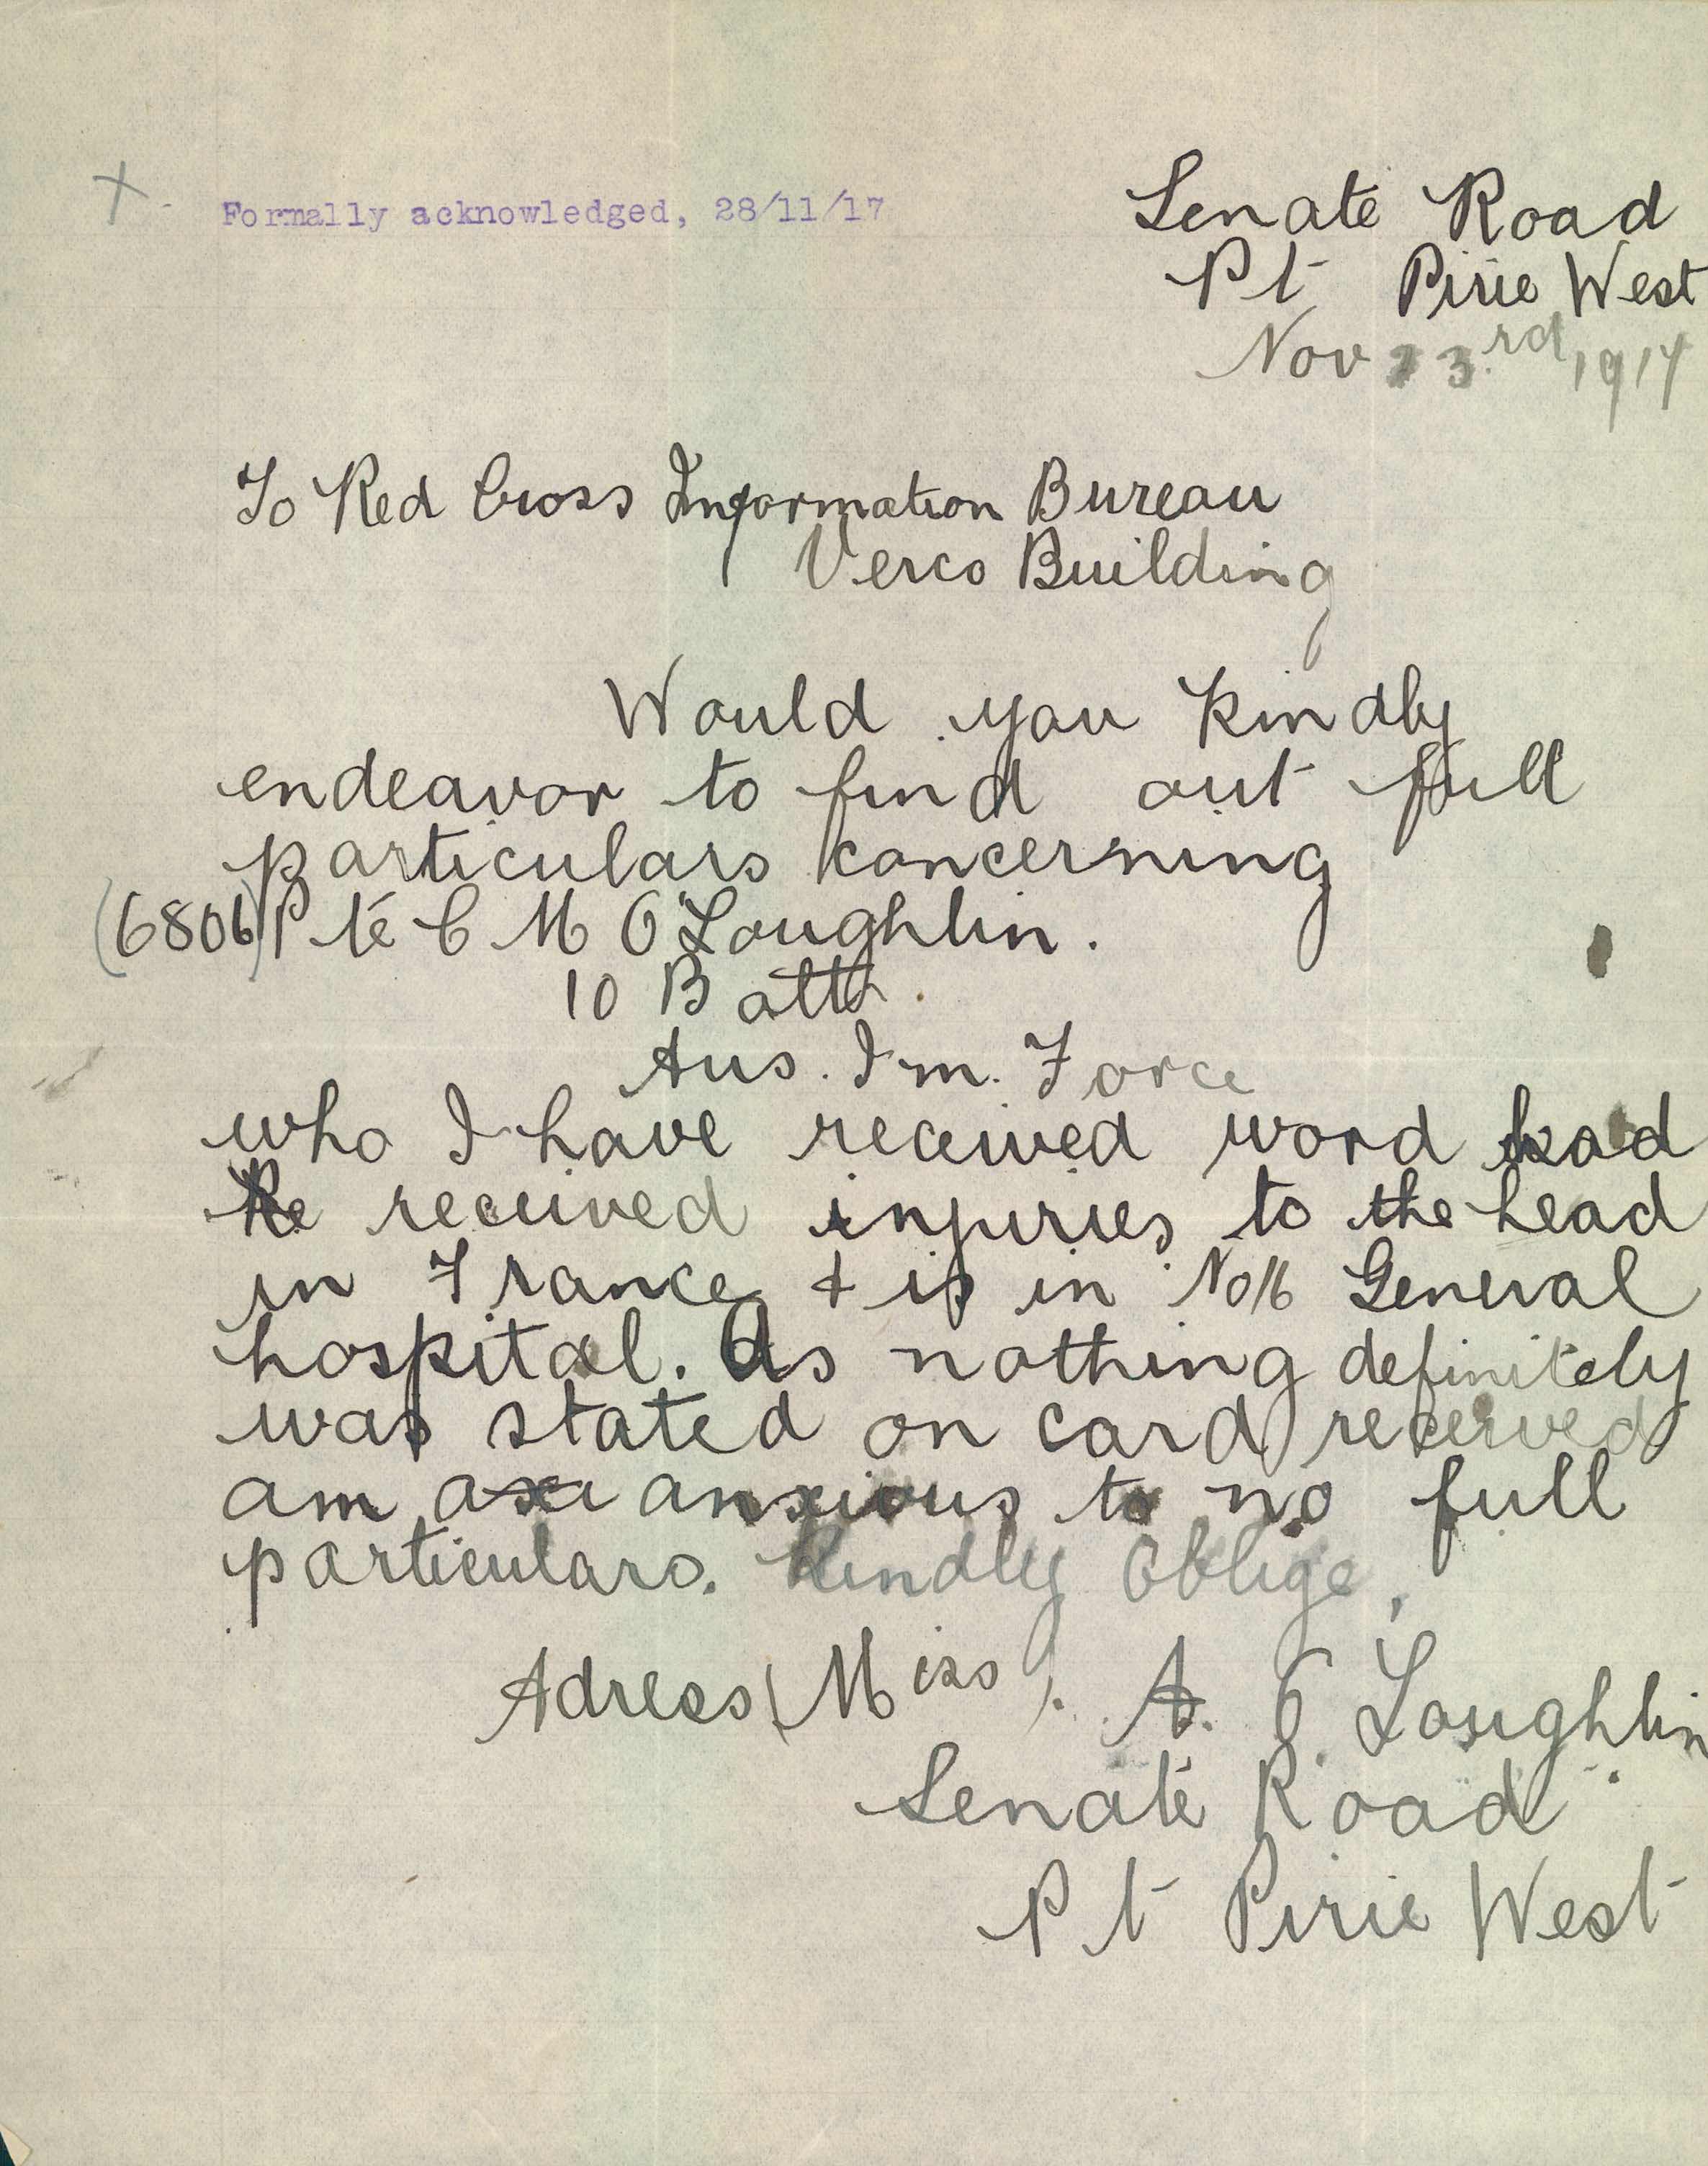 Formally acknowledged, 28/11/17
Senate Road
Pt Pirie West
Nov 23rd, 1917
To Red Cross Information Bureau
Verco Building
Would you kindly
endeavor to find out full
particulars concerning
(6806) Pte C M O'Loughlin.
10 Batt.
Aus. Im. Force
who I have received word had
he received injuries to the head
in France & is in No 16 General
hospital. As nothing definitely
was stated on card received
am anxious to no full
particulars. Kindly Oblige,
Adress (Miss). A. O'Loughlin
Senate Road
Pt Pirie West